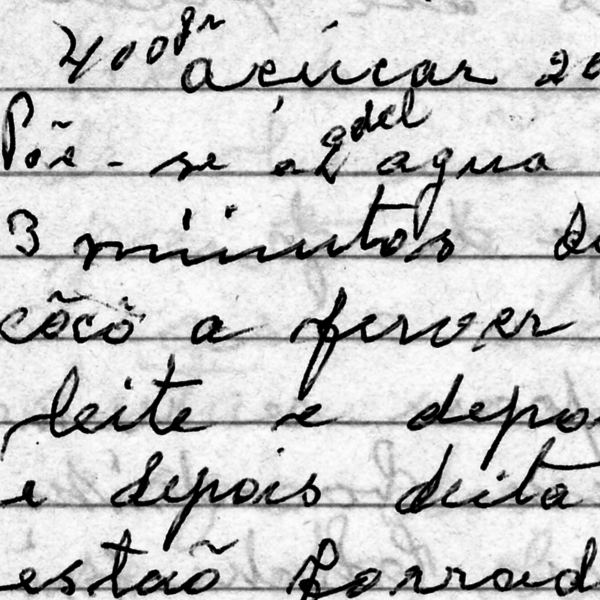 400 gr açúcar 20
Põe-se a água
3 minutos
côcô a ferver
leite e depo
e depois deita
estaõ forrad